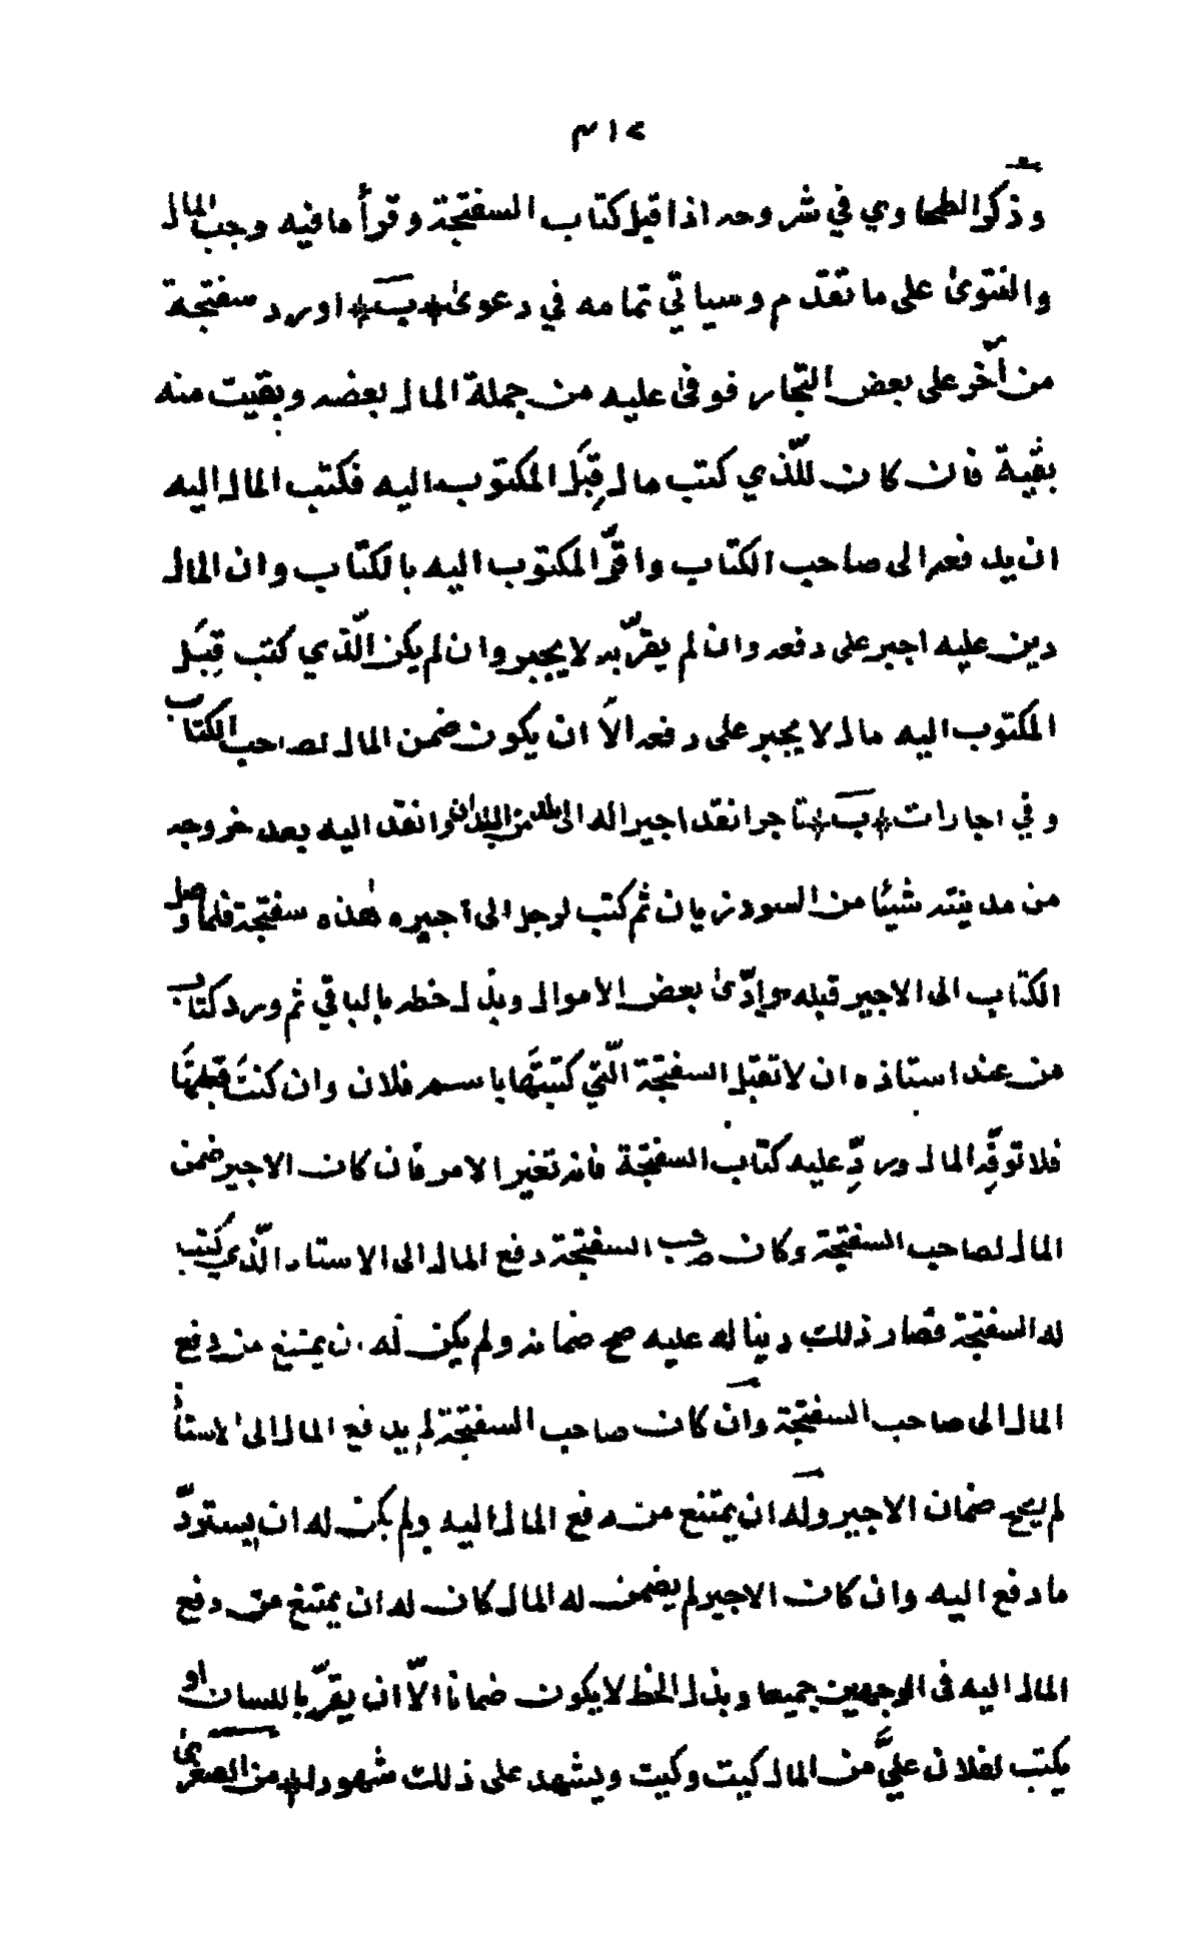 ٣١٢
وذكر الطحاوي في شروحه اذا قبل كتاب السفتجة وقرأ ما فيه وجب المال
والفتوىٰ على ما تقدم وسياتي تمامه في دعوىٰ * ب * اورد سفتجة
من آخر على بعض التجّار فوفىٰ عليه من جملة المال بعضه وبقيت منه
بقية فان كان للّذي كتب مال قِبَل المكتوب اليه فكتب المال اليه
ان يدفعه الى صاحب الكتاب واقرّ المكتوب اليه بالكتاب وان المال
دين عليه اجبر على دفعه وان لم يقرّ به لا يجبر وان لم يكن الّذي كتب قِبَل
المكتوب اليه مال لا يجبر على دفعه الاّ ان يكون ضمن المال لصاحب الكتاب
وفي اجارات * ب * تاجر انفذ اجيرا له الى بلد من البلدان وانفذ اليه بعد خروجه
من مدينته شيئا من السودزيان ثم كتب لرجل الى آجيره هٰذه سفتجة فلما وصل
الكتاب الى الاجير قبله وادّىٰ بعض الاموال وبذل خطه بالباقي ثم ورد كتاب
من عند استاذه ان لا تقبل السفتجة الّتي كتبتها باسم فلان وان كنتَ قبلتَها
فلا توفِّه المال وردِّ عليه كتاب السفتجة فانه تغير الامر فان كان الاجير ضمن
المال لصاحب السفتجة وكان صاحب السفتجة دفع المال الى الاستاد الّذي كتب
له السفتجة فصار ذلك دينا له عليه صح ضمانه ولم يكن له ان يمتنع من دفع
المال الى صاحب السفتجة وان كان صاحب السفتجة لم يدفع المال الى الاستاذ
لم يصح ضمان الاجير وله ان يمتنع من دفع المال اليه ولم يكن له ان يستردّ
ما دفع اليه وان كان الاجير لم يضمن له المال كان له ان يمتنع من دفع
المال اليه فى الوجهين جميعا وبذل الخط لا يكون ضمانا الاّ ان يقرّ باللسان او
يكتب لفلان عليَّ من المال كيت وكيت ويشهد على ذلك شهودا * من الصغرىٰ